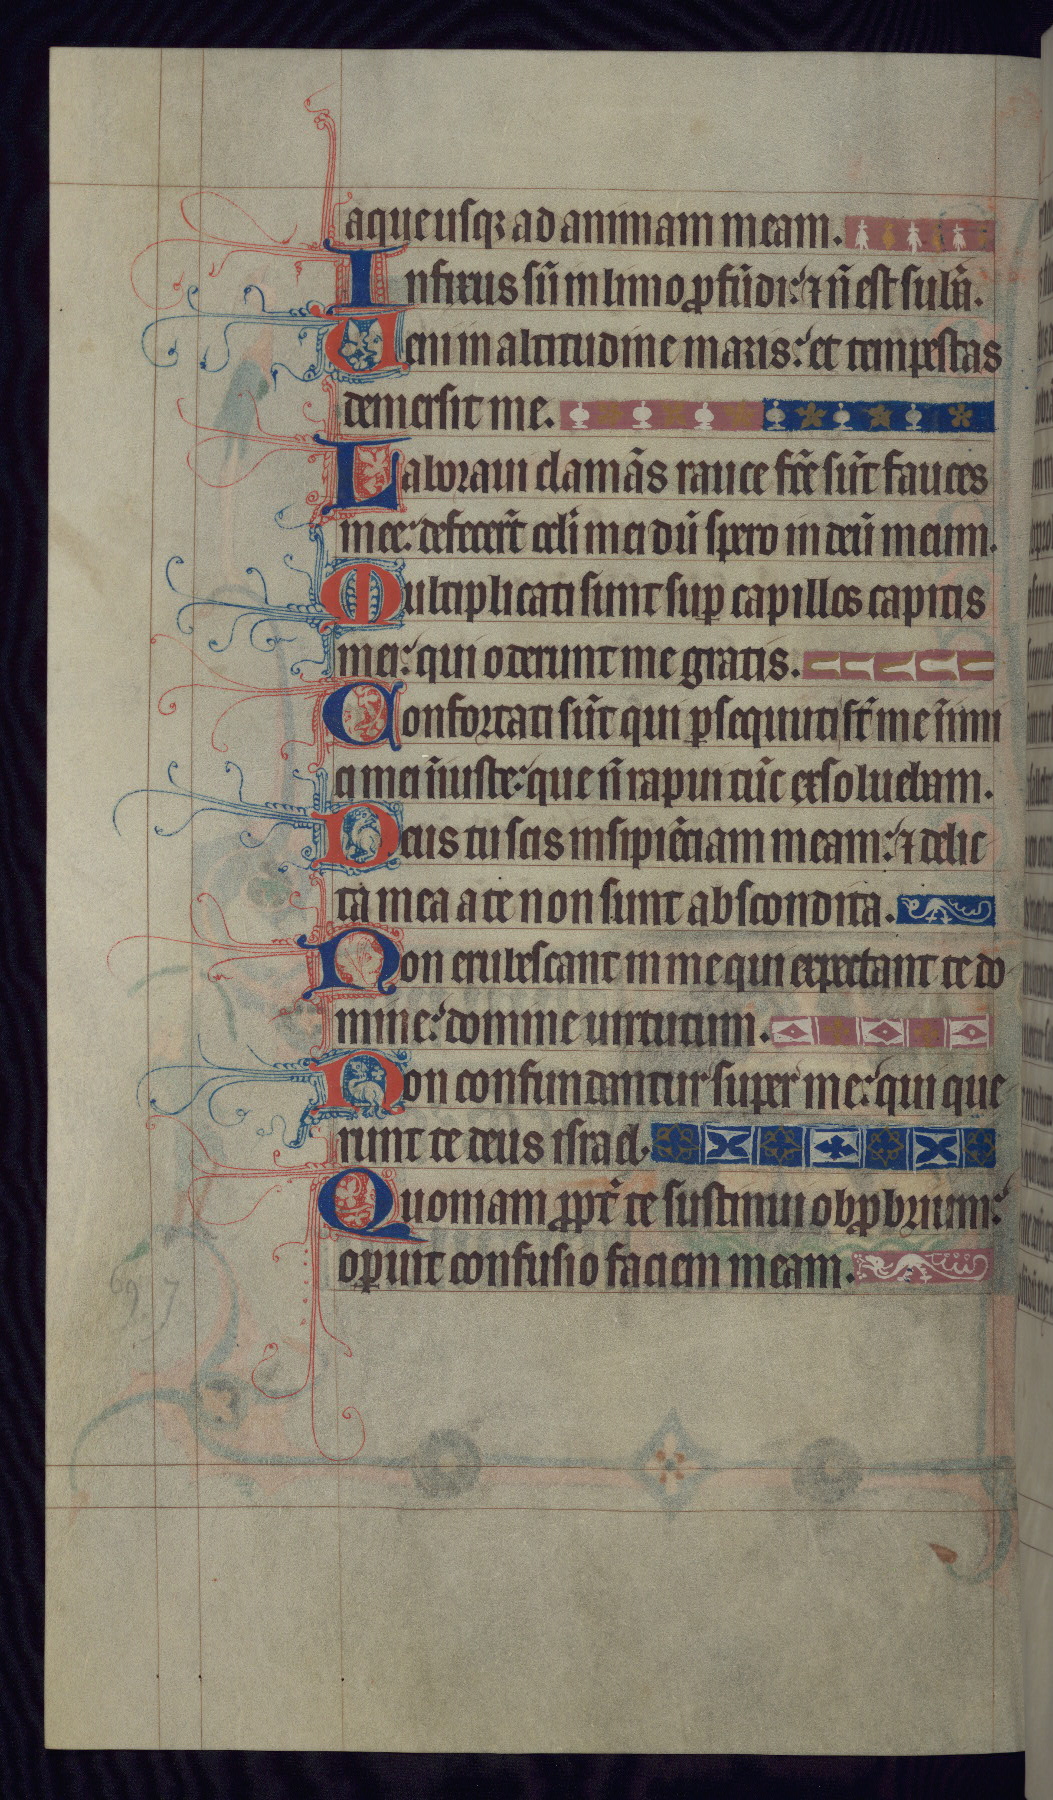 aque usqꝫ ad animam meam.
Infixus sū in limo ꝓfūdi: ⁊ n̄ est sub̄a.
Veni in altitudine maris: et tempestas
demersit me.
Laboraui clamās rauce fc̄e sūt fauces
mee: defecer̄t oc̄li mei dū spero in deū meum.
Multiplicati sunt suꝑ capillos capitis
mei: qui oderunt me gratis.
Confortati sūt qui ꝑsequuti st̄ me inimi
ci mei iniuste: que n̄ rapui tūc exsoluebam.
Deus tu scis insipiēciam meam: ⁊ delic
ta mea a te non sunt abscondita.
Non erubescant in me qui expectant te do
mine: domine uirtutum.
Non confundantur super me: qui que
runt te deus israel.
Quoniam ꝓpt̄ te sustinui obꝓbrium:
oꝑuit confusio faciem meam.
69.7